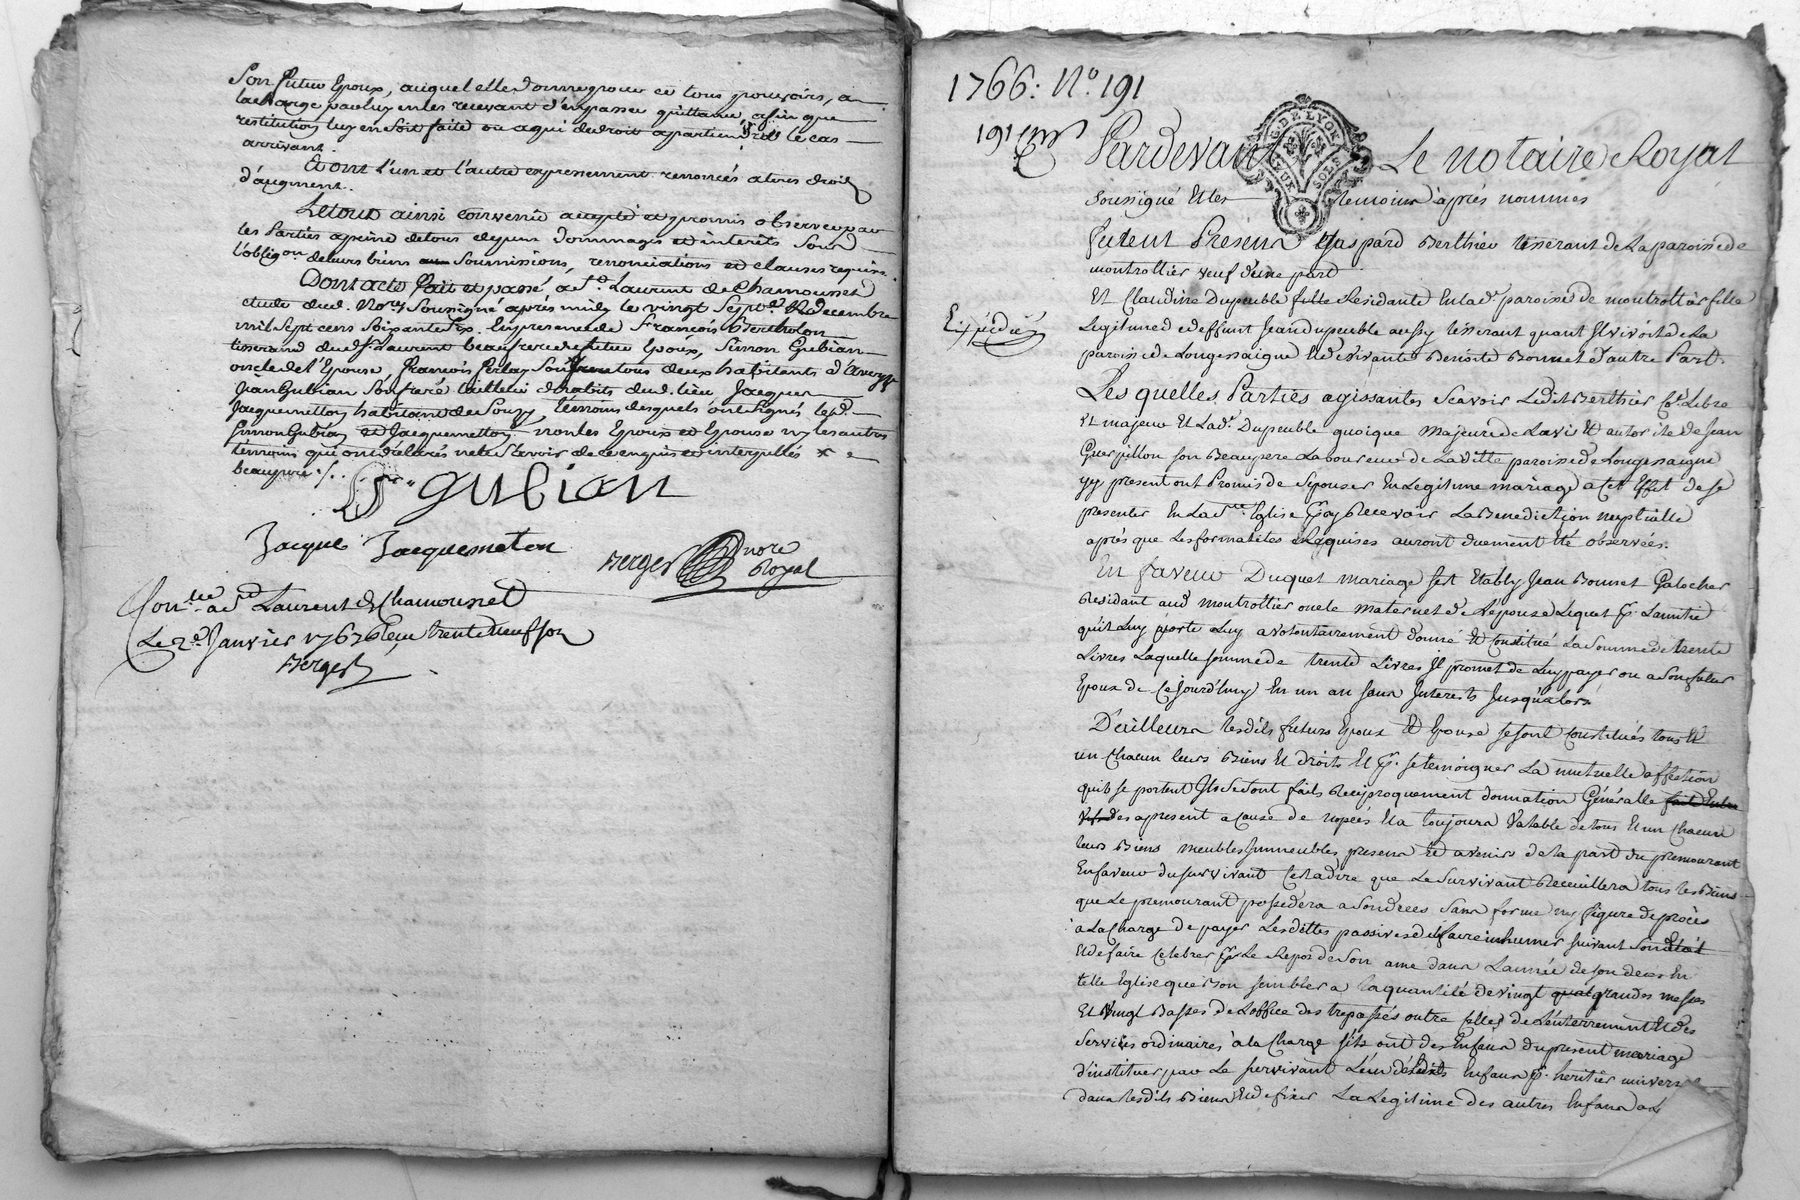 Son futur Epoux, auquel elle donne pouvoir de tous pouvoirs, a
la charge par luy en les recevant d'en passer quittance, afin que
restitution luy en soit faite ou a qui de droit apartiendra le cas
arrivant.
Et ont l'un et l'autre expressement renoncés a tous droits
d'augment.
Le tout ainsi convenu accepté et promis observer par
les Parties a peine de tous depens dommages et interets sous
l'oblig.on de leurs biens soumissions, renonciations et clauses requises.
Dont acte fait et passé a St. Laurent de Chamousset
etude dud. No.re soussigné après midy le vingt sept.e Decembre
mil sept cens soixante six. En presence de François Bertholon
tisserand dud. St. Laurent beaufrere du futur Epoux, Simon Gubian
oncle de l'Epouse, François tous deux habitans d'
Jean Gubian son frere tailleur d'habits dud. lieu Jacques
Jacquemetton habitant de Souzy, temoins desquels ont signés led.
Simon Gubian et Jacquemetton non les Epoux et Epouse ny les autres
témoins qui ont declarés ne le scavoir de ce enquis et interpellés x
beaupere ./.
Sr. GUBIAN
Jacque Jacquemeton
Berger nore
Royal
Con.lle a St. Laurent de Chamousset
Le 2e Janvier 1767 Reçu trente neuf sols
Berger
1766: No. 191
191
G. DE LYON
SOLS
Pardevant Le notaire Royal
soussigné et les temoins d'aprés nommés
furent Presens Gaspard Berthier tisserant de la paroisse de
montrottier veuf d'une part
Et Claudine Dupeuble fille Residante en lad. paroisse de montrottier fille
Expedié
Legitime de deffunt Jean dupeuble aussy tisserant quant il vivoit de La
paroisse de Longessaigne et de vivante Benoite Bonnet d'autre Part.
Les quelles Parties agissantes scavoir Ledit Berthier Co.e Libre
et majeur et Lad. Dupeuble quoique majeure de L'avis et autorité de Jean
Guerpillon son Beaupere Laboureur de Laditte paroisse de Longessaigne
yy present ont Promis de s'épouser En Legitime mariage a Cet Effet de se
presenter En La Ste. Eglise Pour y Recevoir La Benediction nuptialle
après que Les formalites Requises auront duement été observées.
En faveur Duquel mariage s'est Etably Jean Bonnet Galocher
Residant aud. montrottier oncle maternel de L'epouse Lequel Pr. L'amitié
qu'il Luy porte Luy a volontairement donné et Constitué La somme de trente
Livres Laquelle somme de trente Livres Il promet de Luy payer ou a son futur
Epoux de Ce jourd'huy En un an sans Interests Jusqu'alors
D'ailleurs Lesdits futurs Epoux et Epouse se sont Constitués tous et
un Chacun leurs Biens et droits Et Pr. se temoigner La mutuelle affection
qu'ils se portent Ils se sont faits Reciproquement donnation Généralle faite Entre
Vifs des apresent a Cause de nopces Et a toujours Valable de tous et un Chacun
leurs Biens meubles Immeubles, presens et avenir de la part du premourant
En faveur du survivant C'est a dire que Le Survivant Recueillera tous les Biens
que Le premourant possedera a son deces Sans forme ny figure de procès
a La Charge de payer Les dettes passives de le faire inhumer suivant son état
Et de faire Celebrer Pr. Le Repos de Son ame dans L'année de son deces En
telle Eglise que bon semblera la quantité de vingt quat grandes messes
Et Vingt Basses de L'office des trepassés outre Celles de L'enterrement et des
Services ordinaires à la Charge s'ils ont des Enfans du present mariage
d'instituer par Le survivant L'un desdits Enfans Pr. heritier univers
dans lesdits Biens Et de fixer La Legitime des autres Enfans a L